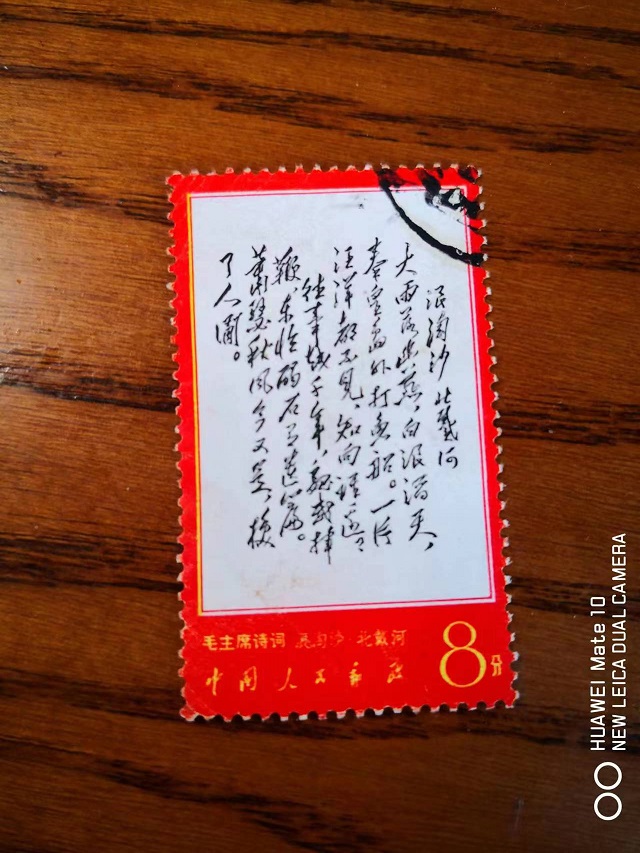 浪淘沙 北戴河
大雨落幽燕,白浪滔天,
秦皇岛外打鱼船。一片
汪洋都不见,知向谁边?
往事越千年,魏武挥
鞭,东临碣石有遗篇。
萧瑟秋风今又是,换
了人间。
毛主席诗词 浪淘沙 北戴河
中国人民邮政
8分
HUAWEI Mate 10
NEW LEICA DUAL CAMERA